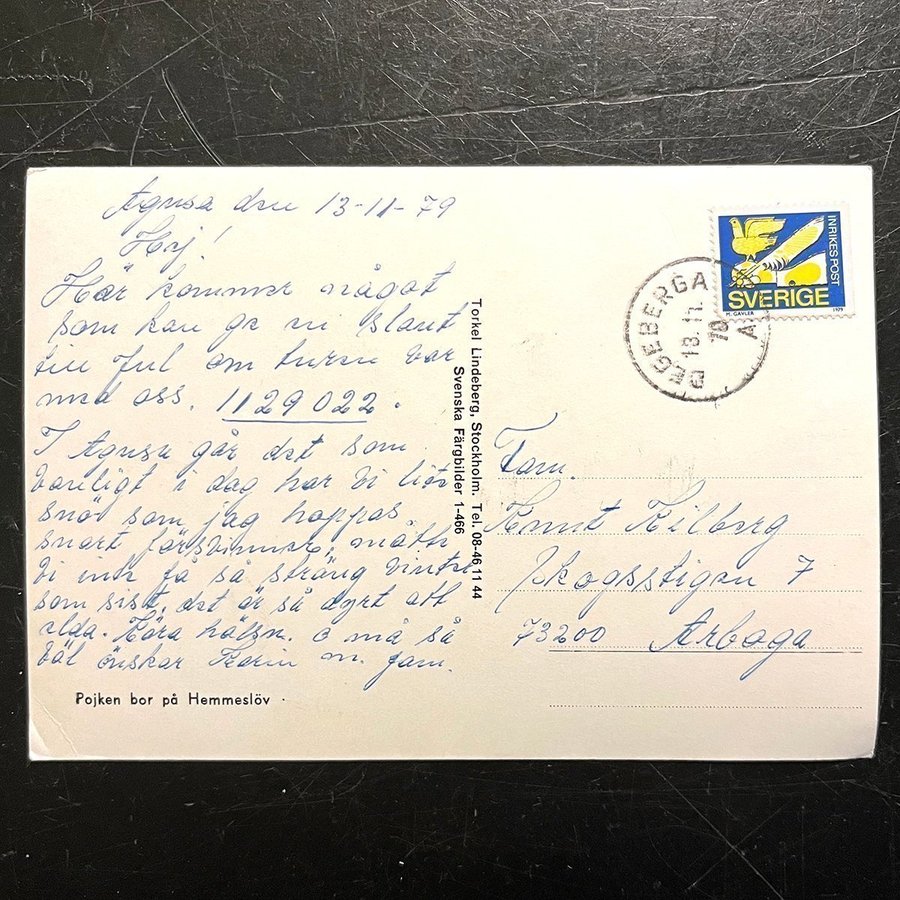 Agusa den 13-11-79
Hej!
Här kommer något
som kan ge en slant
till Jul om turen var
med oss. 1129022.
I Agusa går det som
vanligt i dag har vi lite
snö som jag hoppas
snart försvinner, måtte
vi inte få så sträng vinter
som sist, det är så dyrt att
elda. Kära hälsn. o må så
väl önskar Karin m. fam.
Pojken bor på Hemmeslöv
Torkel Lindeberg, Stockholm. Tel. 08-46 11 44
Svenska Färgbilder 1-466
INRIKES POST
SVERIGE
M. GAVLER 1979
DEGEBERGA
13.11.
79
A
Fam.
Knut Kilberg
Skogsstigen 7
73200 Arboga